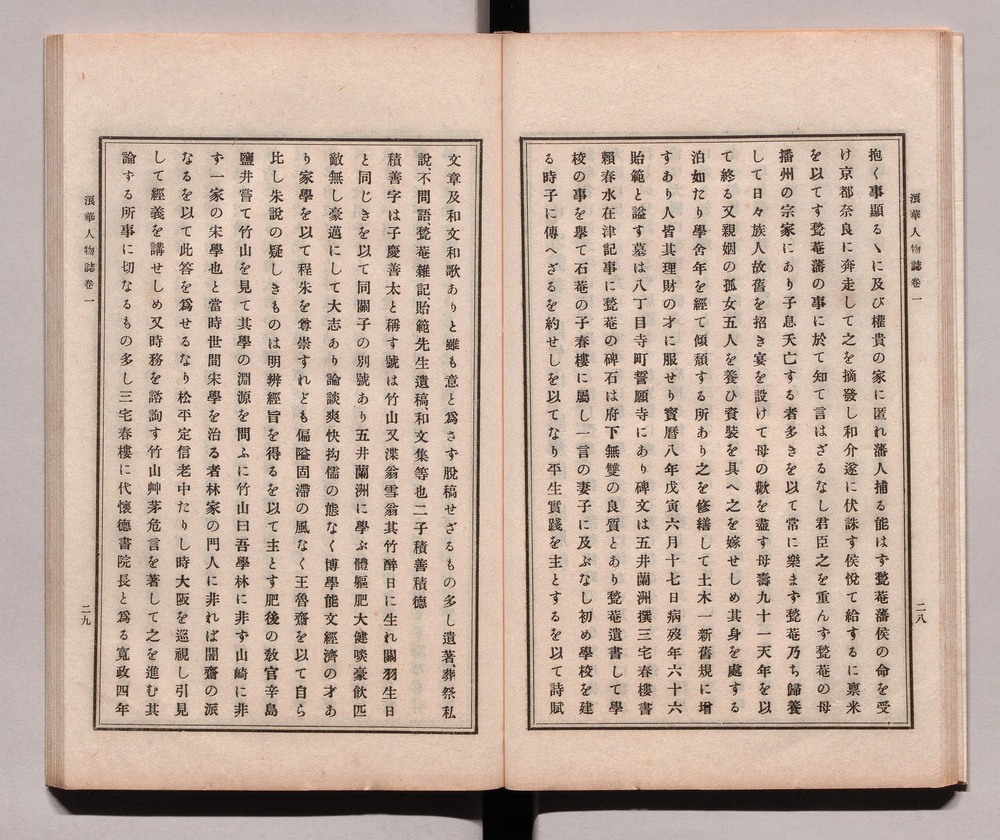 浪華人物誌卷一
二八
抱く事顯るゝに及び權貴の家に匿れ藩人捕る能はす甃菴藩侯の命を受
け京都奈良に奔走して之を摘發し和介遂に伏誅す侯悅て給するに稟米
を以てす甃菴藩の事に於て知て言はざるなし君臣之を重んす甃菴の母
播州の宗家にあり子息夭亡する者多きを以て常に樂まず甃菴乃ち歸養
して日々族人故舊を招き宴を設けて母の歡を盡す母壽九十一天年を以
て終る又親姻の孤女五人を養ひ資裝を具へ之を嫁せしめ其身を處する
泊如たり學舍年を經て傾頽する所あり之を修繕して土木一新舊規に增
すあり人皆其理財の才に服せり寶曆八年戊寅六月十七日病歿年六十六
貽範と謚す墓は八丁目寺町誓願寺にあり碑文は五井蘭洲撰三宅春樓書
賴春水在津記事に甃菴の碑石は府下無雙の良質とあり甃菴遺書して學
校の事を擧て石菴の子春樓に屬し一言の妻子に及ぶなし初め學校を建
る時子に傳へざるを約せしを以てなり平生實踐を主とするを以て詩賦
文章及和文和歌ありと雖も意と爲さす脫稿せざるもの多し遺著葬祭私
說、不問語甃菴雜記、貽範先生遺稿、和文集等也二子積善積德
積善字は子慶善太と稱す號は竹山又渫翁雪翁其竹醉日に生れ關羽生日
と同じきを以て同關子の別號あり五井蘭洲に學ぶ體軀肥大健啖豪飮匹
敵無し豪邁にして大志あり論談爽快拘儒の態なく博學能文經濟の才あ
り家學を以て程朱を尊崇すれども偏隘固滯の風なく王魯齋を以て自ら
比し朱說の疑しきものは明辨經旨を得るを以て主とす肥後の敎官辛島
鹽井嘗て竹山を見て其學の淵源を問ふに竹山曰吾學林に非す山崎に非
す一家の宋學也と當時世間宋學を治る者林家の門人に非れば闇齋の派
なるを以て此答を爲せるなり松平定信老中たりし時大阪を巡視し引見
して經義を講せしめ又時務を諮詢す竹山艸茅危言を著して之を進む其
論する所事に切なるもの多し三宅春樓に代懷德書院長と爲る寬政四年
浪華人物誌卷一
二九